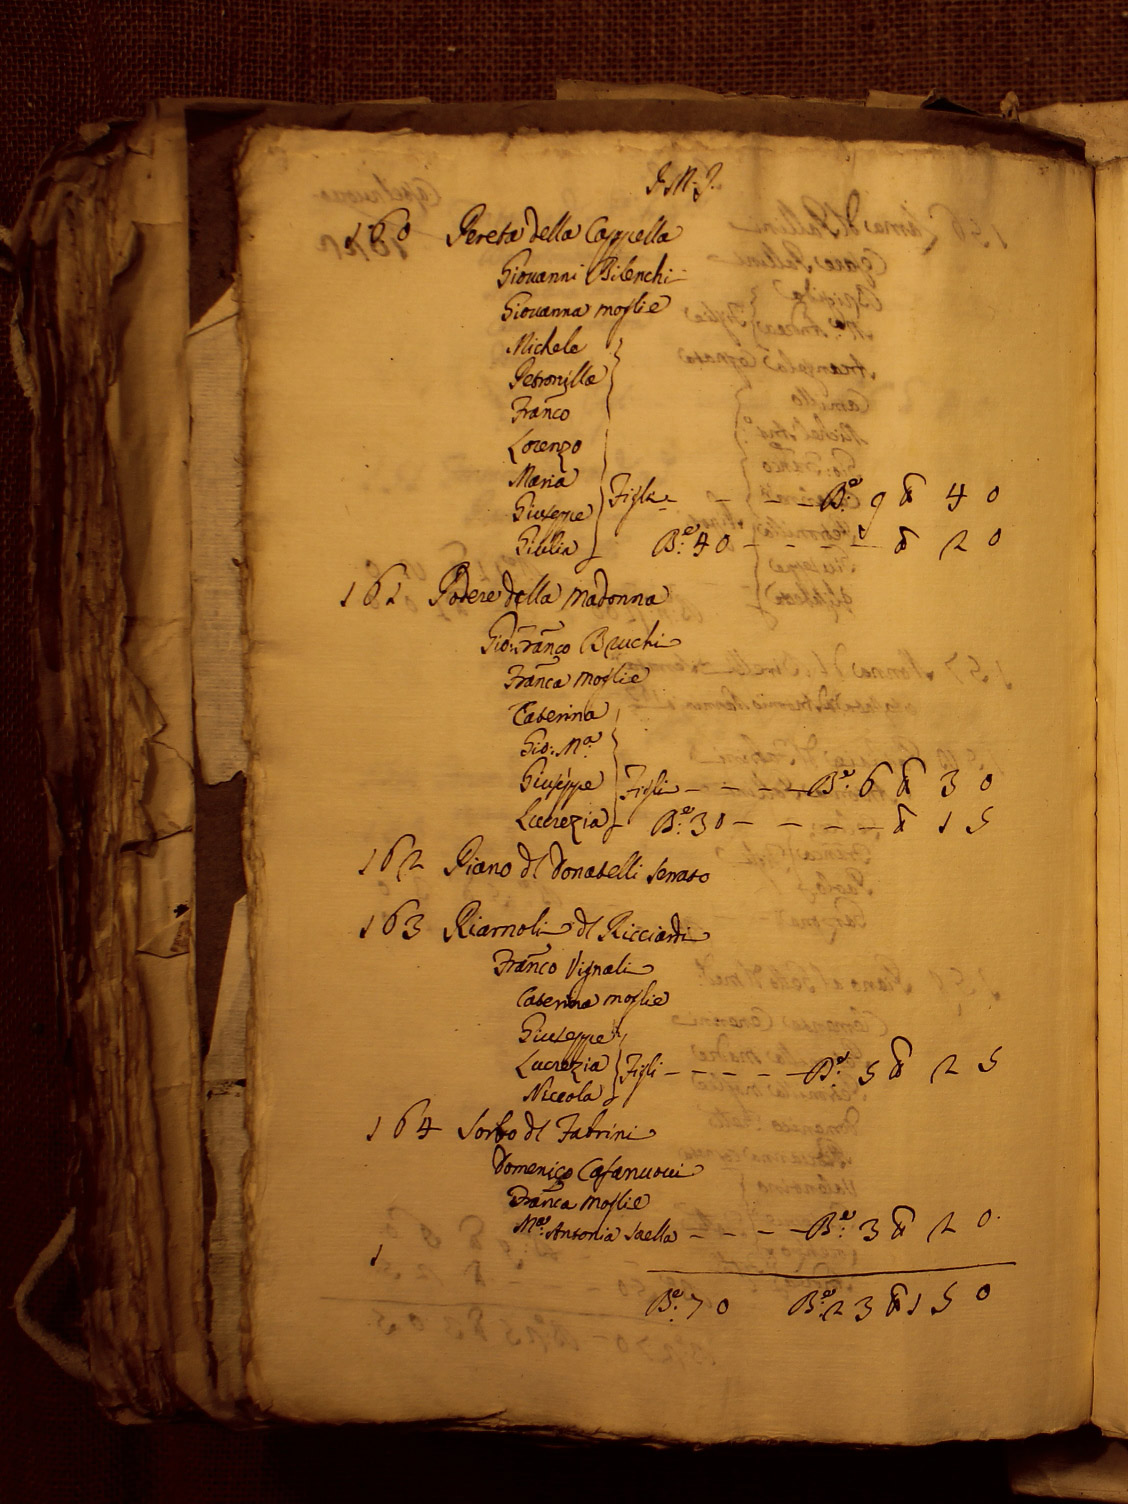 J. M. J.
160 Pereta della Cappella
Giovanni Bilenchi
Giovanna moglie
Michele
Petronilla
Franco
Lorenzo
Maria
Giuseppe } Figli - - - Be: 9 & 40
Gililia Be: 40 - - - - & 20
161 Podere della Madonna
Gio: Franco Bruchi
Franca moglie
Caterina
Gio: Ma
Giuseppe } Figli - - - - Be: 6 & 30
Lucrezia Be: 30 - - - - & 15
162 Piano dl Donatelli serrato
163 Riarnoli dl Ricciardi
Franco Vignali
Caterina moglie
Giuseppe
Lucrezia } Figli - - - - - Be: 5 & 25
Niccola
164 Sorbo dl Fabrini
Domenico Casanuovi
Franca moglie
Ma: Antonia Saella - - - - Be: 3 & 20
1
Be: 70 Be: 23 & 150